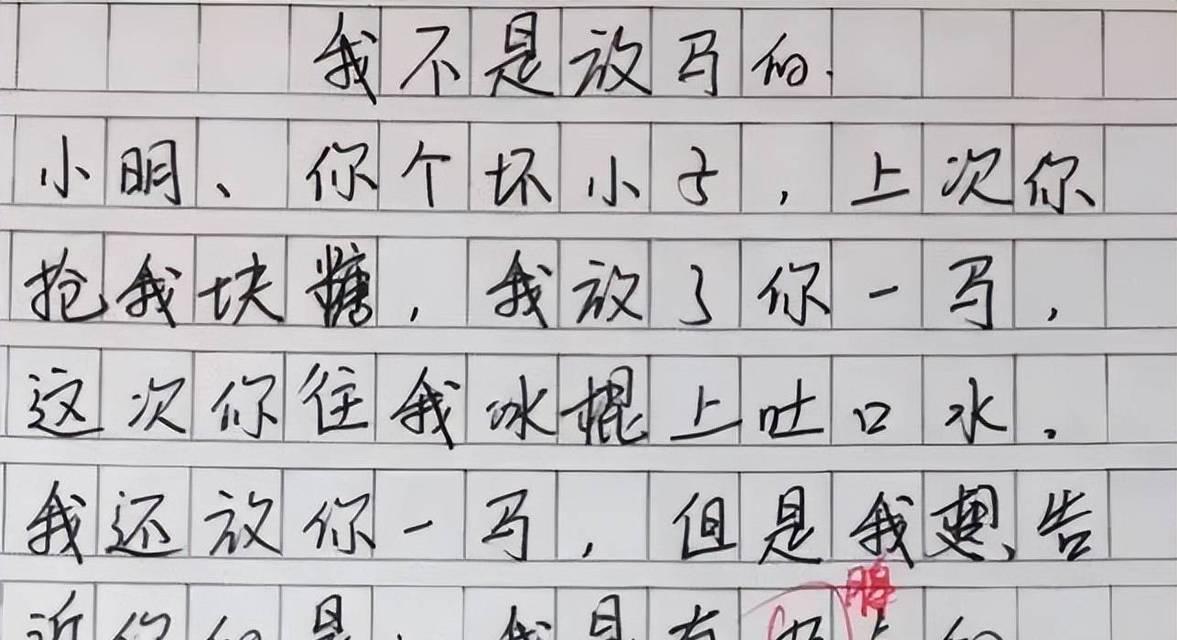 我不是放马的.
小明、你个坏小子,上次你
抢我块糖,我放了你一马,
这次你往我冰棍上吐口水.
我还放你一马,但是我想告
你的是,我是有的